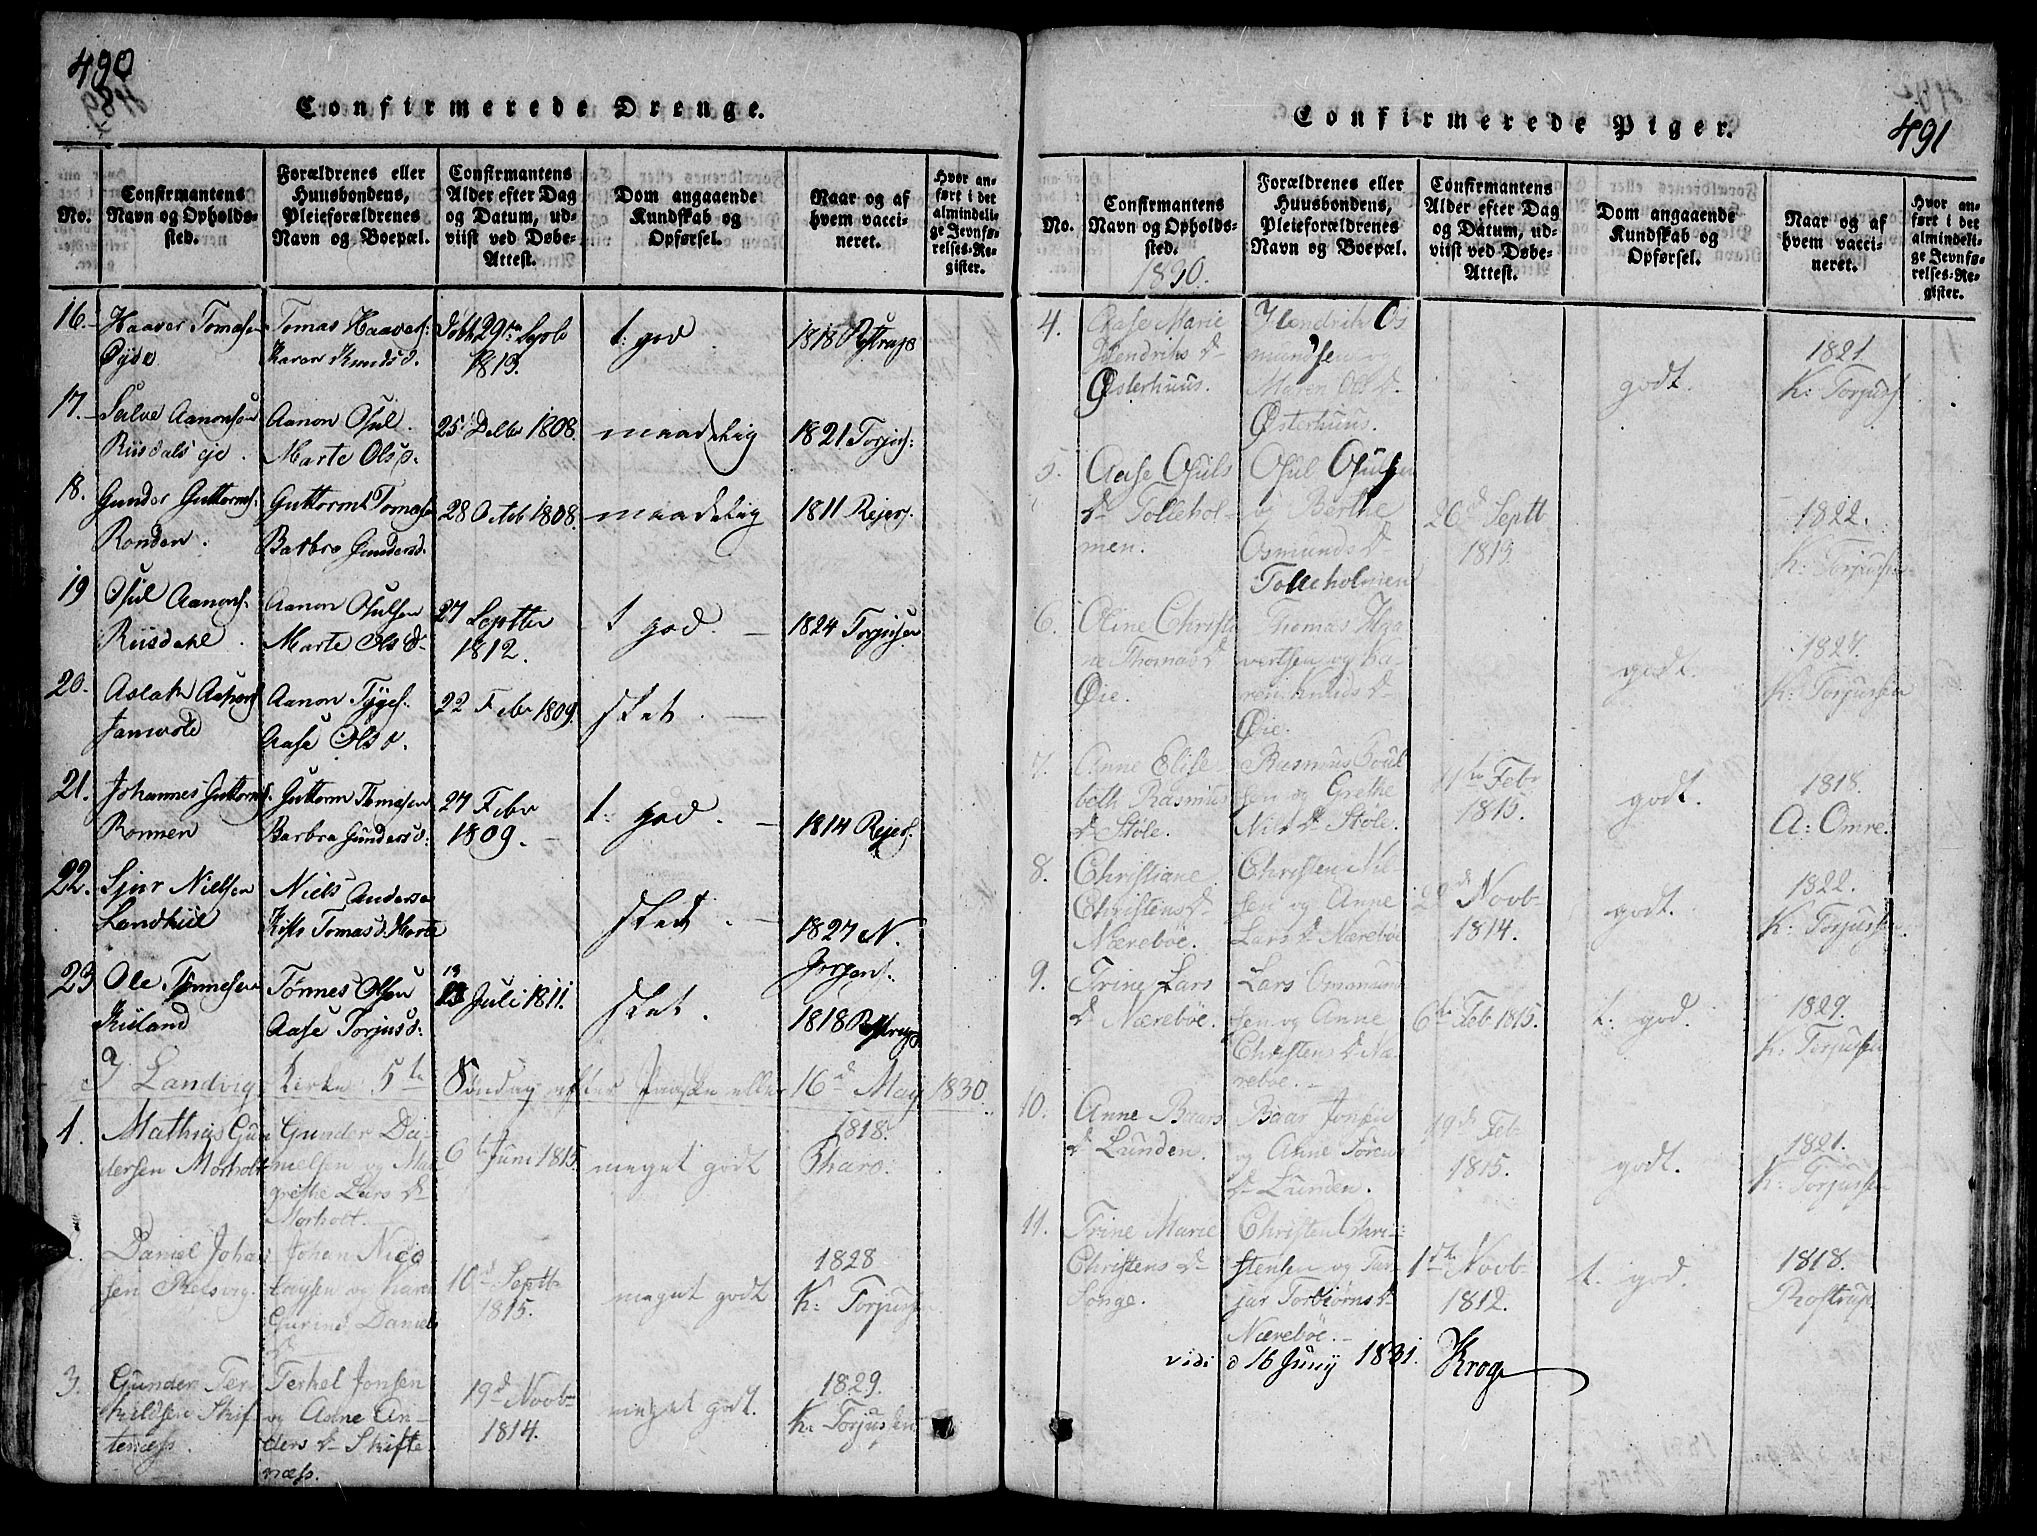 490
Confirmerede Drenge.
No.
Confirmantens
Navn og Opholds-
sted.
Forældrenes eller
Huusbondens,
Pleieforældrenes
Navn og Boepæl.
Confirmantens
Alder efter Dag
og Datum, ud-
viist ved Døbe-
Attest.
Dom angaaende
Kundskab og
Opførsel.
Naar og af
hvem vacci-
neret.
Hvor an-
ført i det
almindeli-
ge Jevnfø-
relses-Re-
gister.
16.
Haaver Tomasen
Øyde
Tomas Haavers:
Karen Knudsd.
1813.
t: god
1818 Rostrup
17.
Salve Aanonsøn
Riisdals eje.
Aanon Osul.
Marte Olsd.
25 Decbr 1808.
maadelig
1821 Torjus:
18.
Gunder Guttorms:
Ronden.
Guttorm Tomasen
Barbro Gundersd.
28 Octob 1808.
maadelig
1811 Rejers.
19
Osul Aanons.
Riisdahl.
Aanon Osulsen
Marte Olsd
27 Septbr
1812.
t god.
1824 Torjusen
20.
Aslak Aanons
Aanon Tyges.
Aase Olsd.
22 Febr 1809.
slet.
21.
Johannes Guttorms.
Ronnen
Guttorm Tomasen
Barbro Gundersd:
27 Febr
1809.
t: god.
1814 Rejers.
22.
Sjur Nielsen
Landhiil
Niels Andersen
Kirsti Tomasd. Horte
slet.
1827 N.
Jørgens.
23
Ole Tønnesen
Riiland
Tønnes Olsen
Aase Torjusd:
13 Juli 1811.
slet.
1818 Rostrup
I Landvig Kirke 5te Søndag efter Paaske eller 16d May 1830.
1.
Mathias Gun
dersen Morholt
Gunder Da-
nielsen og Mar
grethe Lars D
Morholt.
6te Juni 1815.
meget godt
1818.
Tharo.
2.
Daniel Johan
sen Relsvig.
Johan Nico
laysen og Karen
Gurine Daniels
D
10d Septb
1815.
meget godt
1828
K: Torjursen
3.
Gunder Ter
kildsen Skif
tenæss.
Terkel Jonsen
og Anne An-
ders D Skifte
næss.
19d Novb
1814.
meget godt.
1829.
K: Torjussen
491
Confirmerede Piger.
No.
Confirmantens
Navn og Opholds-
sted.
1830.
Forældrenes eller
Huusbondens,
Pleieforældrenes
Navn og Boepæl.
Confirmantens
Alder efter Dag
og Datum, ud-
viist ved Døbe-
Attest.
Dom angaaende
Kundskab og
Opførsel.
Naar og af
hvem vacci-
neret.
Hvor an-
ført i det
almindeli-
ge Jevnfø-
relses-Re-
gister.
4.
Aase Marie
Hendriks D
Østerhuus.
Hendrik Os
mundsen og
Maren Ols D
Østerhuus.
godt.
1821.
K: Torjurs
5.
Aase Osuls
D Tollehol-
men.
Osul Osulsen
og Berthe
Osmunds D
Tolleholmen
26d Septb
1813
1822.
K: Torjursen
6.
Oline Christi
ne Thomas D
Øie.
Thomas Haa
vertsen og Ka-
ren Knuds D
Øie.
godt.
1827.
K: Torjursen
7.
Anne Elise-
beth Rasmus
D Støle.
Rasmus Poul
sen og Grethe
Nils D Støle.
11te Febr
1815.
godt.
1818.
A: Omre.
8.
Christiane
Christens D
Nærebøe.
Christen Nil-
sen og Anne
Lars D Nærebøe
29d Novb
1814.
godt.
1822.
K: Torjussen.
9.
Trine Lars
D Nærebøe.
Lars Osmund
sen og Anne
Christens D Næ-
rebøe.
6te Feb 1815.
t: god.
1829.
K: Torjussen
10.
Anne Baars
D Lunden.
Baar Jonsen
og Anne Sørens
D Lunden.
19d Feb
1815.
godt.
1821.
K: Torjussen
11.
Trine Marie
Christens D
Songe.
Christen Chri-
stensen og Tar
jur Torbiørns D
Nærebøe.
1ste Novb
1812.
t. god.
1818.
Rostrup
vidi d 16 Junij 1831. Krog